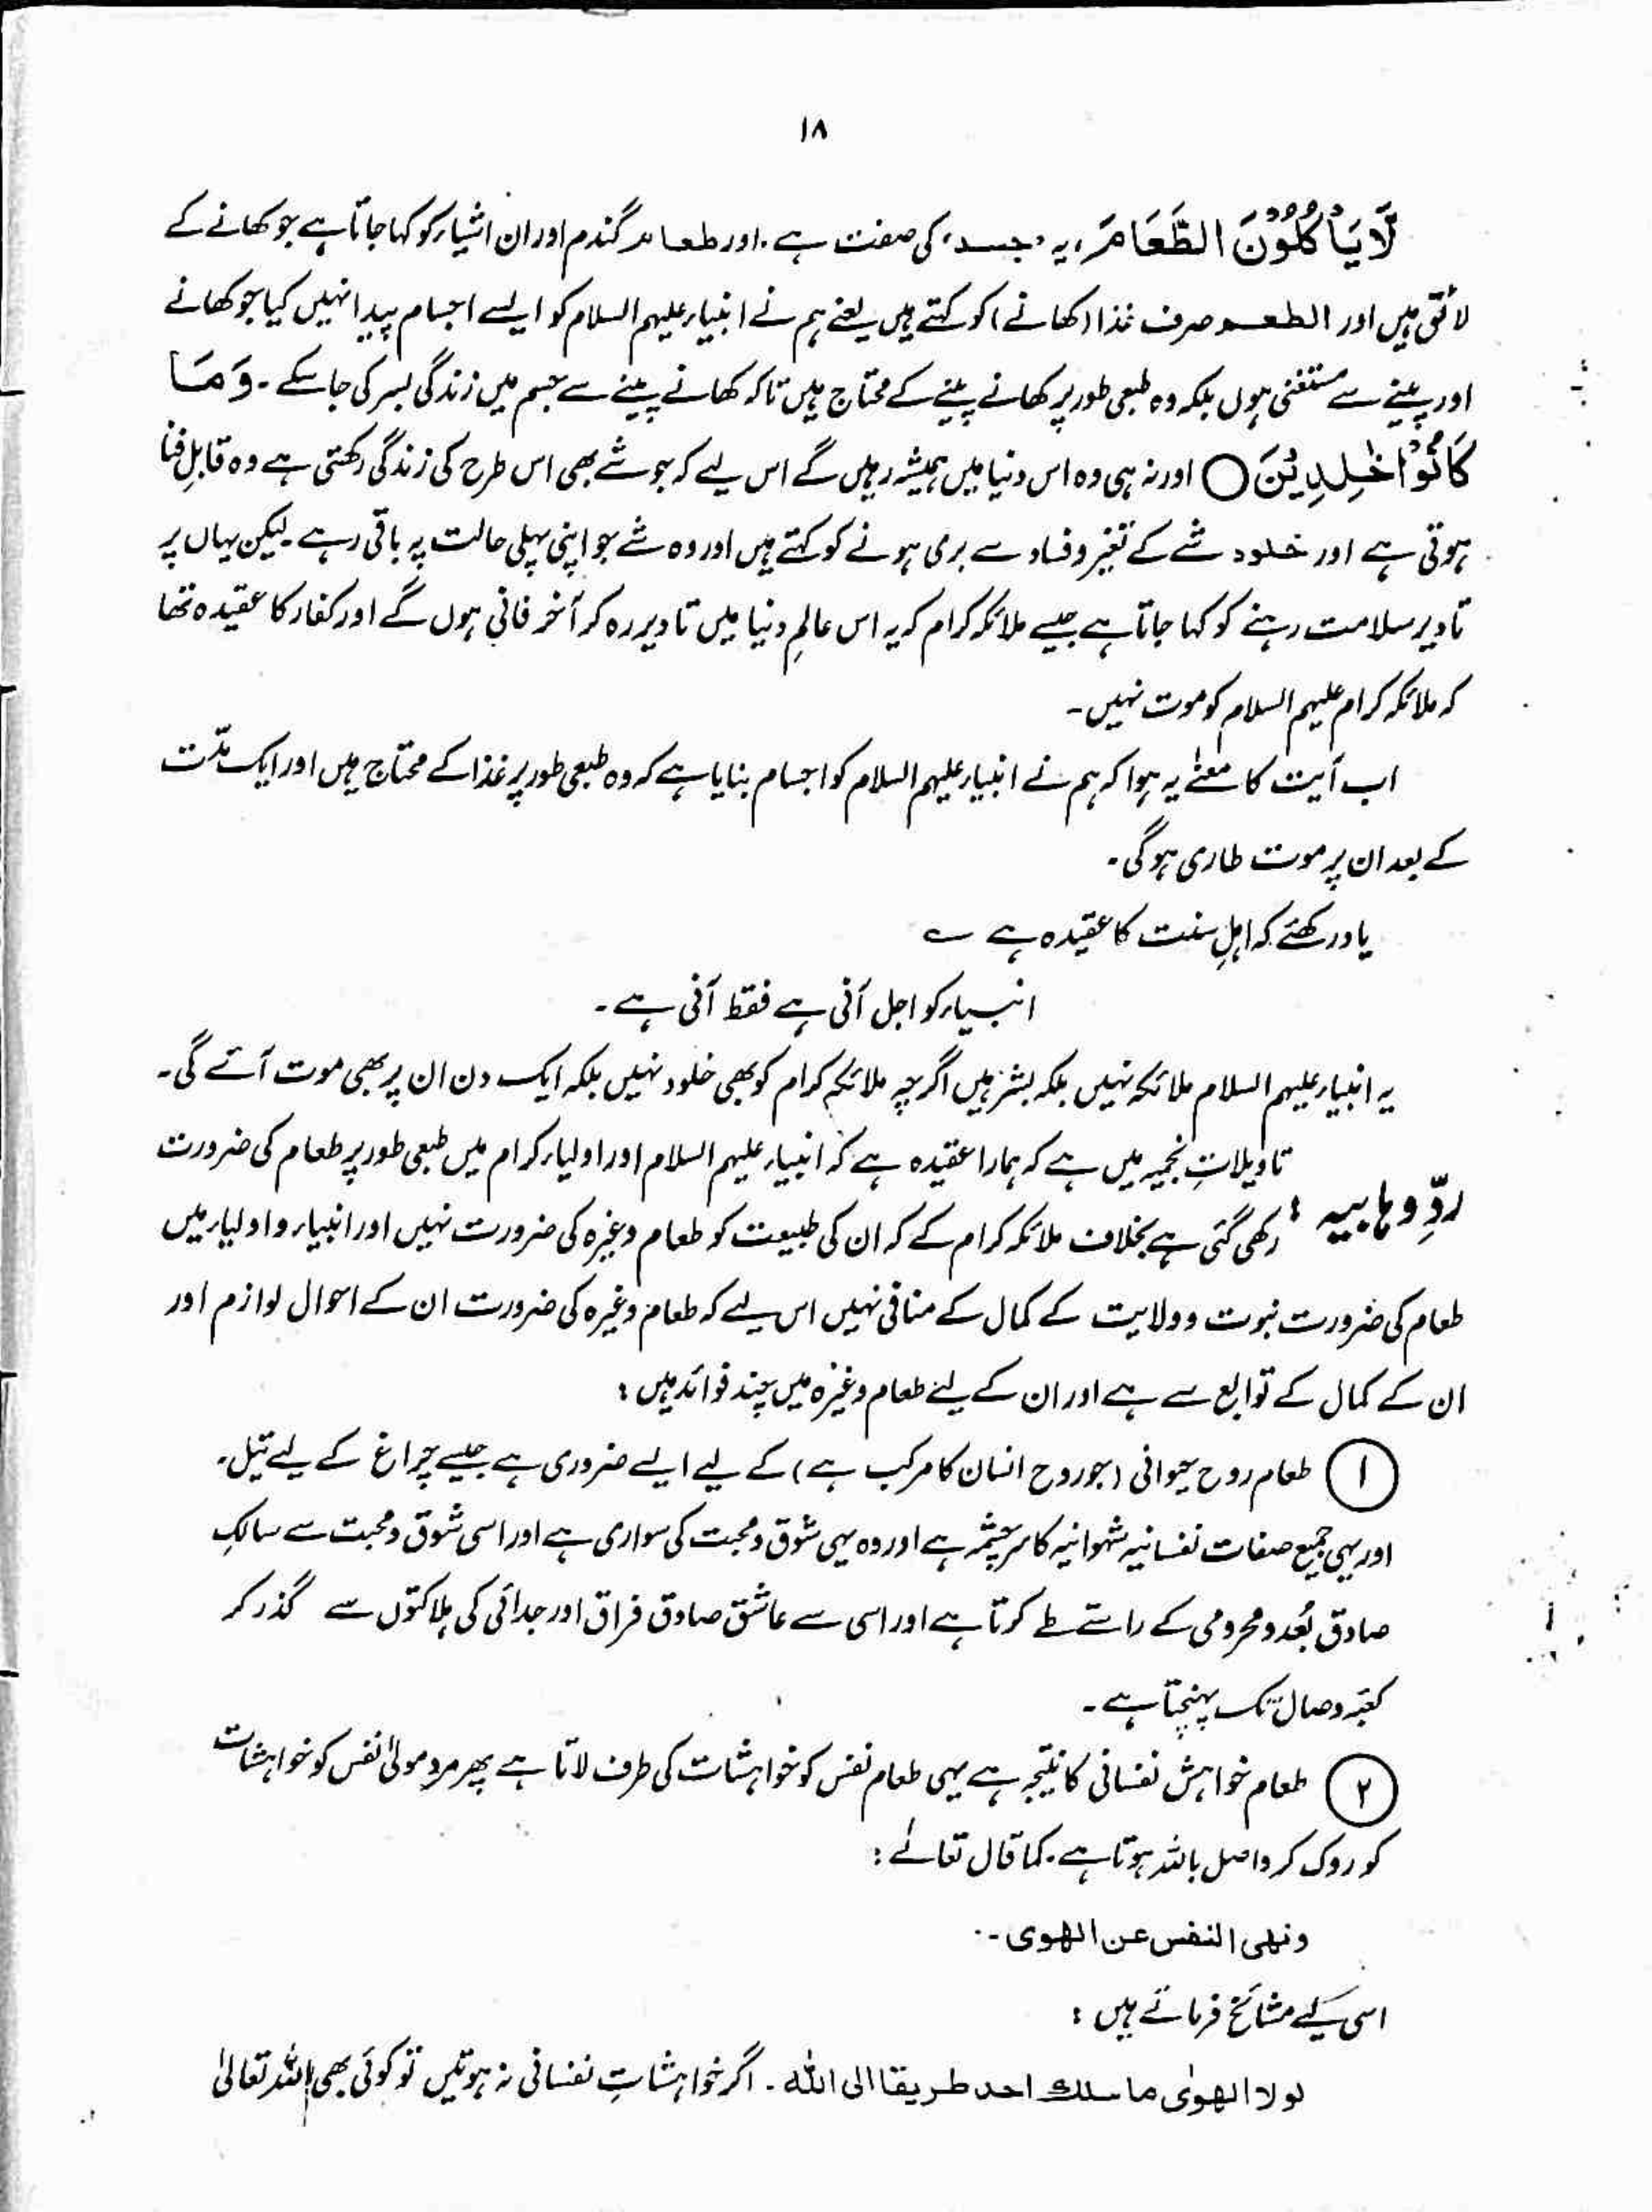 ۱۸
لَّا یَاْکُلُوْنَ الطَّعَامَ، یہ ’جسد‘ کی صفت ہے۔ اور طعام گندم اور ان اشیاء کو کہا جاتا ہے جو کھانے کے
لائق ہیں اور الطعم صرف غذا (کھانے) کو کہتے ہیں یعنے ہم نے انبیاء علیہم السلام کو ایسے اجسام پیدا نہیں کیا جو کھانے
اور پینے سے مستغنی ہوں بلکہ وہ طبعی طور پر کھانے پینے کے محتاج ہیں تاکہ کھانے پینے سے جسم میں زندگی بسر کی جا سکے۔ وَمَا
کَانُوْا خٰلِدِیْنَ ○ اور نہ ہی وہ اس دنیا میں ہمیشہ رہیں گے اس لیے کہ جو شے بھی اس طرح کی زندگی رکھتی ہے وہ قابلِ فنا
ہوتی ہے اور خلود شے کے تغیر و فساد سے بری ہونے کو کہتے ہیں اور وہ شے جو اپنی پہلی حالت پہ باقی رہے۔ لیکن یہاں پر
تادیر سلامت رہنے کو کہا جاتا ہے جیسے ملائکہ کرام کہ یہ اس عالمِ دنیا میں تادیر رہ کر آخر فانی ہوں گے اور کفار کا عقیدہ تھا
کہ ملائکہ کرام علیہم السلام کو موت نہیں۔
اب آیت کا معنےٰ یہ ہوا کہ ہم نے انبیاء علیہم السلام کو اجسام بنایا ہے کہ وہ طبعی طور پر غذا کے محتاج ہیں اور ایک مدّت
کے بعد ان پر موت طاری ہوگی۔
یاد رکھئے کہ اہلِ سنت کا عقیدہ ہے ؎
انبیاء کو اجل آنی ہے فقط آنی ہے۔
یہ انبیاء علیہم السلام ملائکہ نہیں بلکہ بشر ہیں اگرچہ ملائکہ کرام کو بھی خلود نہیں بلکہ ایک دن ان پر بھی موت آئے گی۔
تاویلاتِ نجمیہ میں ہے کہ ہمارا عقیدہ ہے کہ انبیاء علیہم السلام اور اولیاء کرام میں طبعی طور پر طعام کی ضرورت
ردِّ وہابیہ : رکھی گئی ہے بخلاف ملائکہ کرام کے کہ ان کی طبیعت کو طعام وغیرہ کی ضرورت نہیں اور انبیاء و اولیاء میں
طعام کی ضرورت نبوت و ولایت کے کمال کے منافی نہیں اس لیے کہ طعام وغیرہ کی ضرورت ان کے احوال لوازم اور
ان کے کمال کے توابع سے ہے اور ان کے لیے طعام وغیرہ میں چند فوائد ہیں :
۱ طعام روح حیوانی (جو روح انسان کا مرکب ہے) کے لیے ایسے ضروری ہے جیسے چراغ کے لیے تیل۔
اور یہی جمیع صفات نفسانیہ شہوانیہ کا سرچشمہ ہے اور وہ یہی شوق و محبت کی سواری ہے اور اسی شوق و محبت سے سالکِ
صادق بُعد و محرومی کے راستے طے کرتا ہے اور اسی سے عاشق صادق فراق اور جدائی کی ہلاکتوں سے گذر کر
کعبہ وصال تک پہنچتا ہے۔
۲ طعام خواہش نفسانی کا نتیجہ ہے یہی طعام نفس کو خواہشات کی طرف لاتا ہے پھر مردِ مولیٰ نفس کو خواہشات
کو روک کر واصل باللہ ہوتا ہے۔ کما قال تعالےٰ :
ونھی النفس عن الھوی۔
اسی لیے مشائخ فرماتے ہیں :
لولا الھوٰی ما سلك احد طریقا الی اللہ۔ اگر خواہشاتِ نفسانی نہ ہوتیں تو کوئی بھی اللہ تعالیٰ